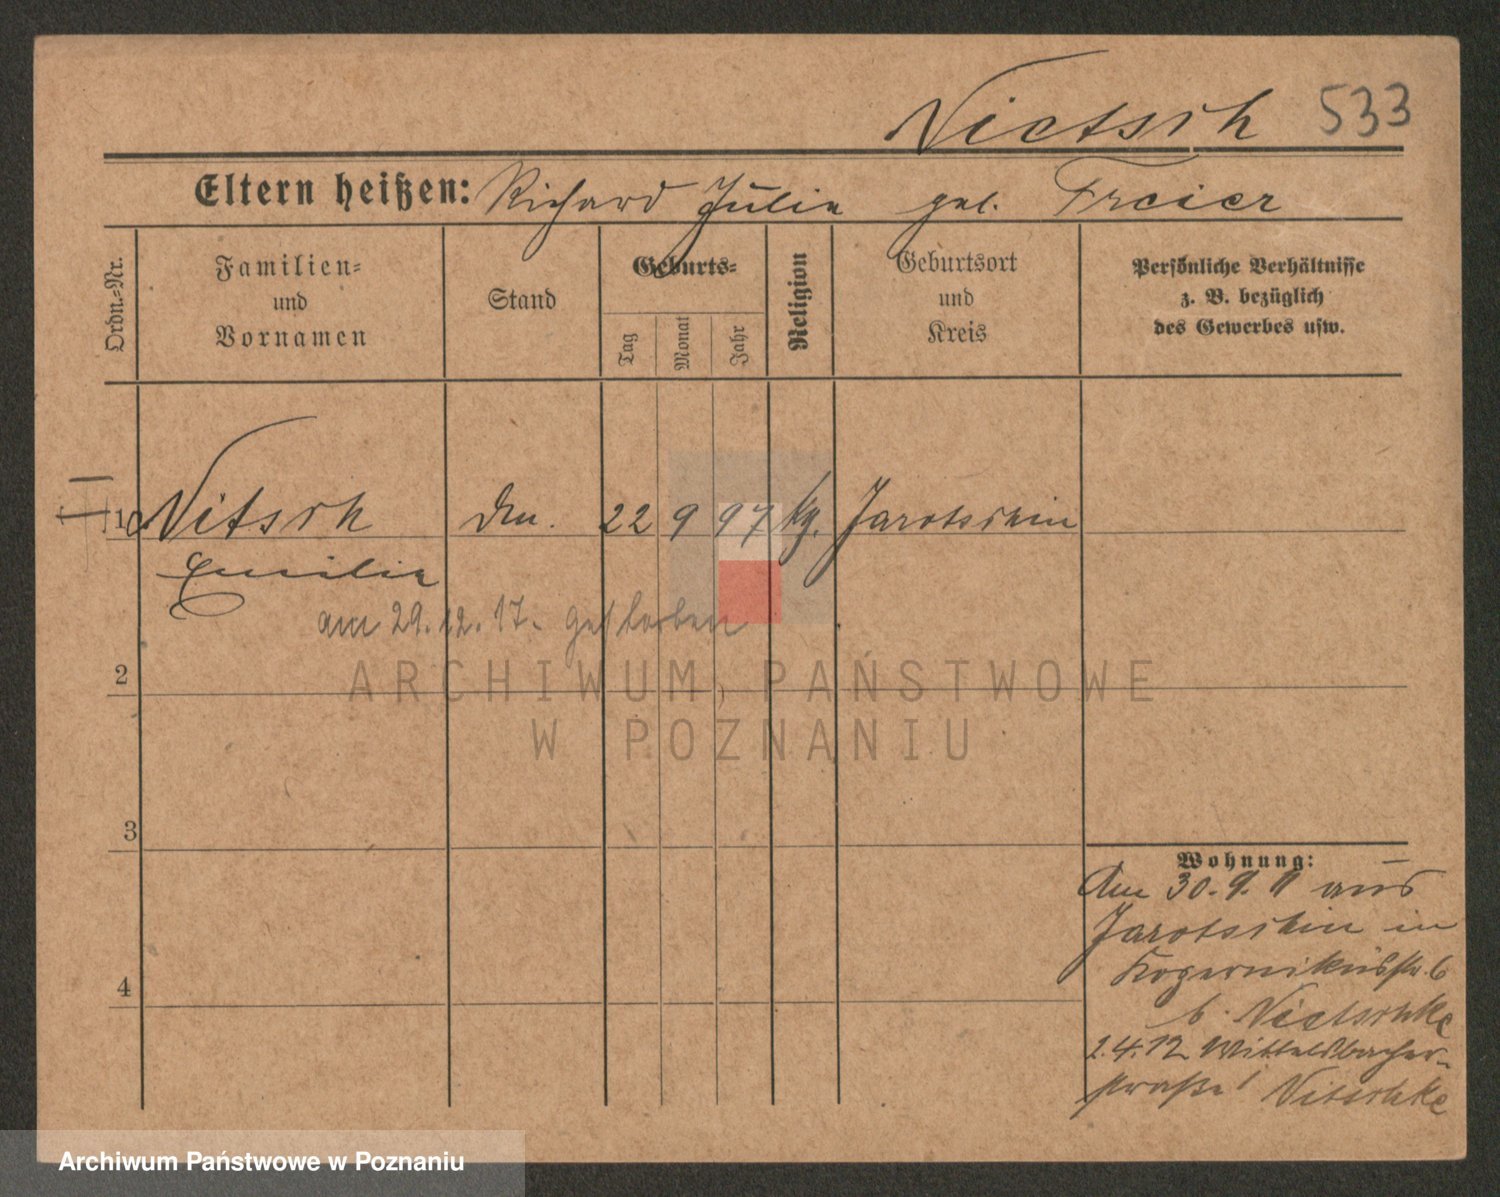 Nietsch 533
Eltern heißen: Richard Julie geb. Freier
Ordn.-Nr.
Familien-
und
Vornamen
Stand
Geburts-
Tag
Monat
Jahr
Religion
Geburtsort
und
Kreis
Persönliche Verhältnisse
z. B. bezüglich
des Gewerbes usw.
1 Nitsch 22 9 97 Jarotschin
Emilie
am 29.12.17. gestorben
2
3
4
Wohnung:
Am 30.9.11 aus
Jarotschin in
Kopernikusstr. 6
b. Nietschke
2.4.12 Wittelsbacher-
straße 1 Nitschke
ARCHIWUM PAŃSTWOWE
W POZNANIU
Archiwum Państwowe w Poznaniu